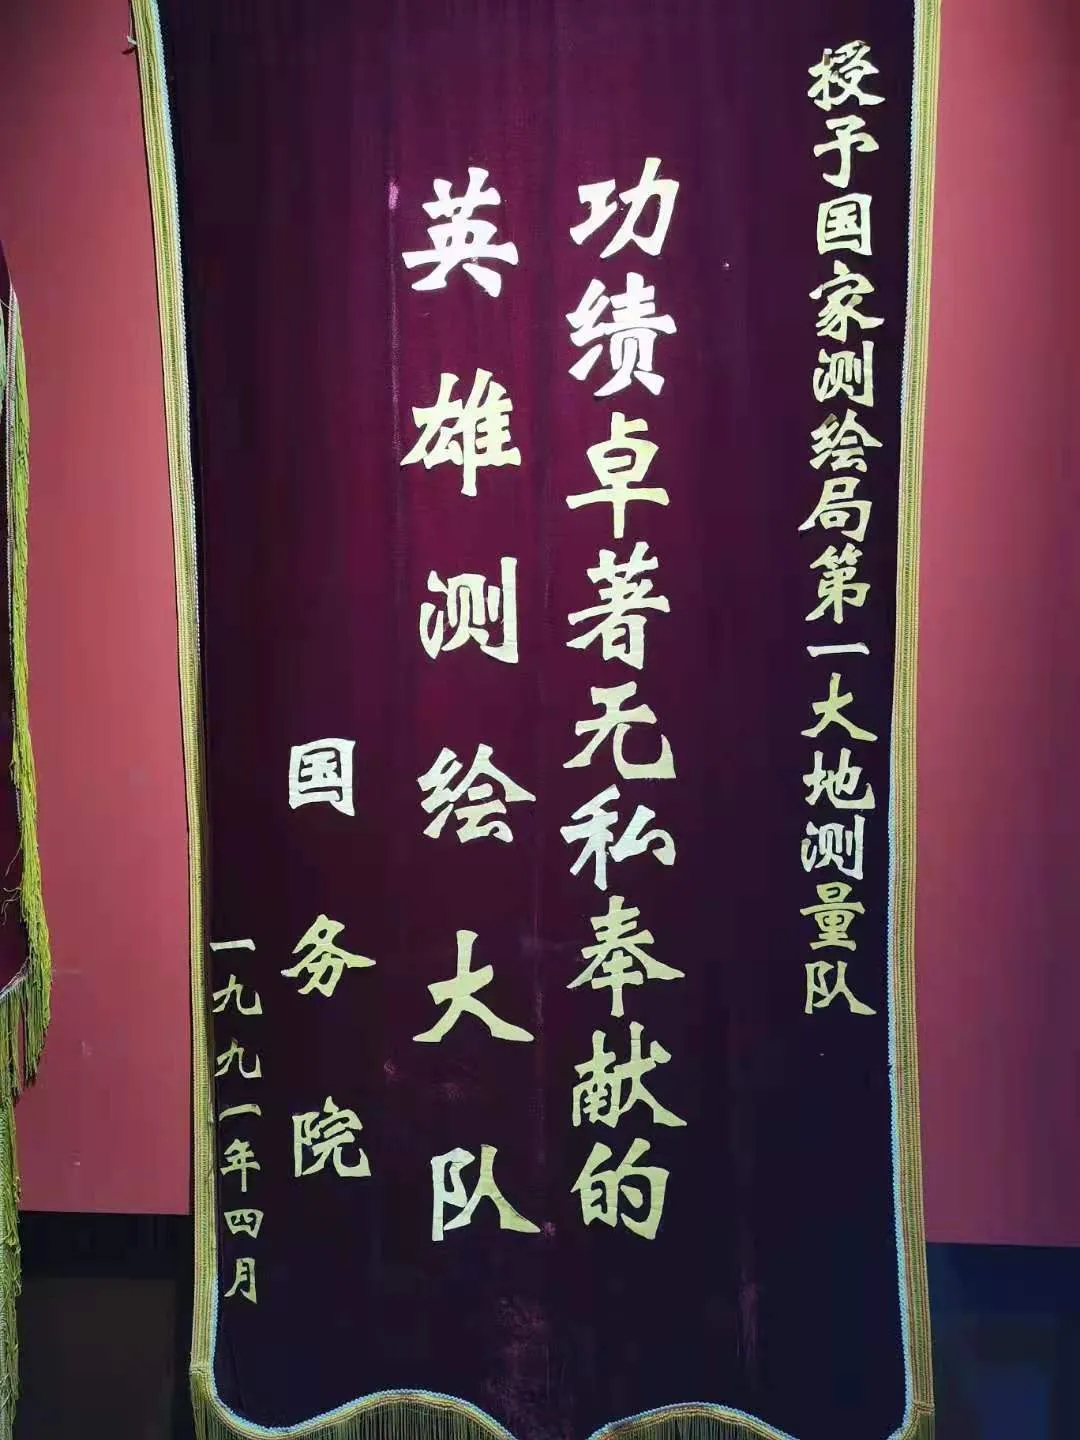 授予国家测绘局第一大地测量队
功绩卓著无私奉献的
英雄测绘大队
国务院
一九九一年四月